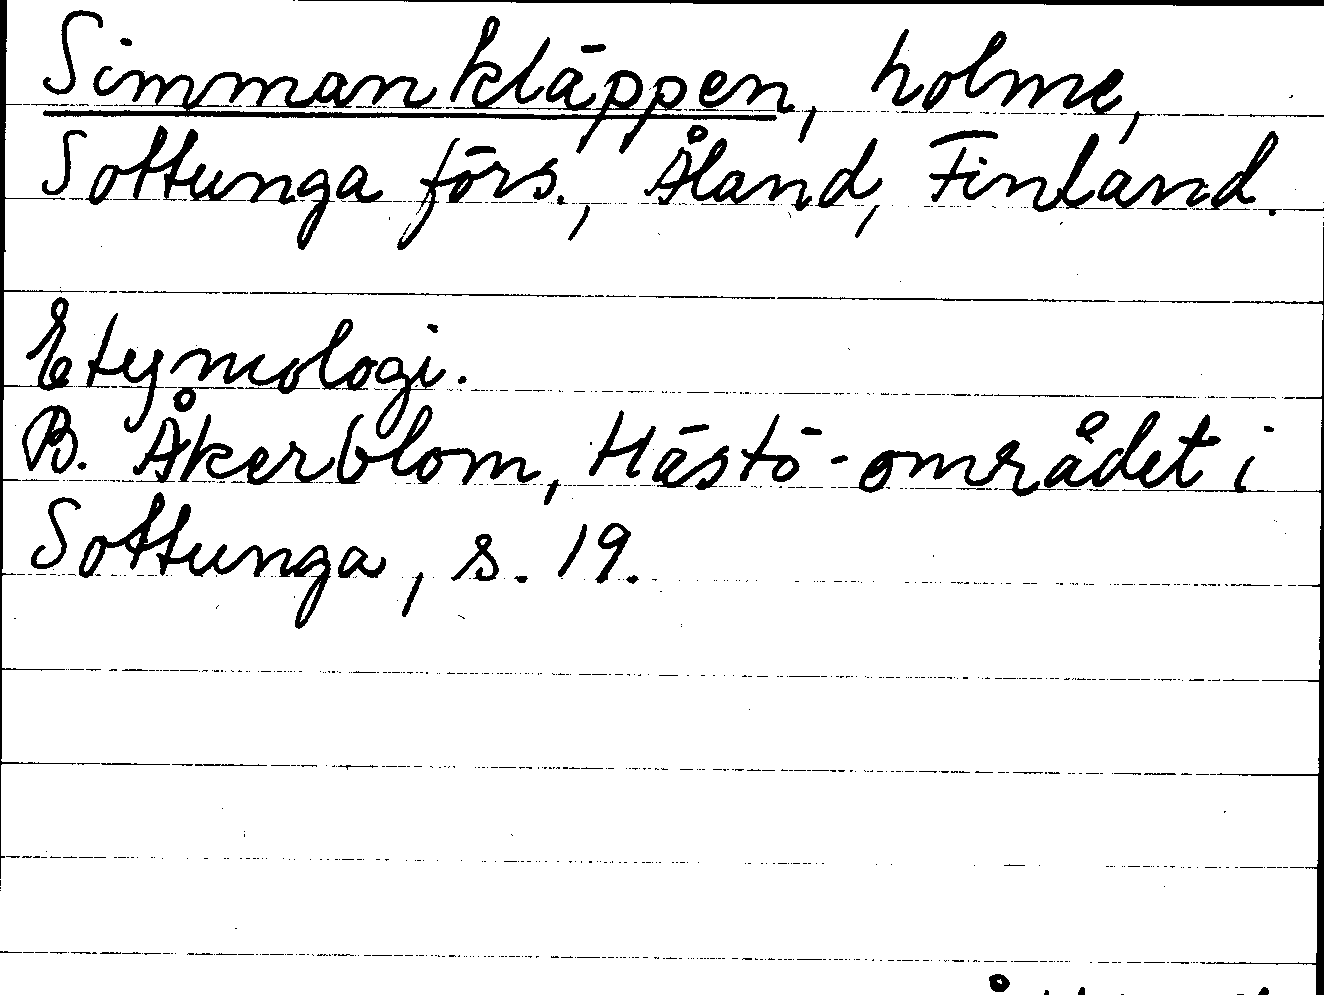 Simmankläppen, holme,
Sottunga förs., Åland, Finland.
Etymologi.
B. Åkerblom, Hästö-området i
Sottunga, s. 19.